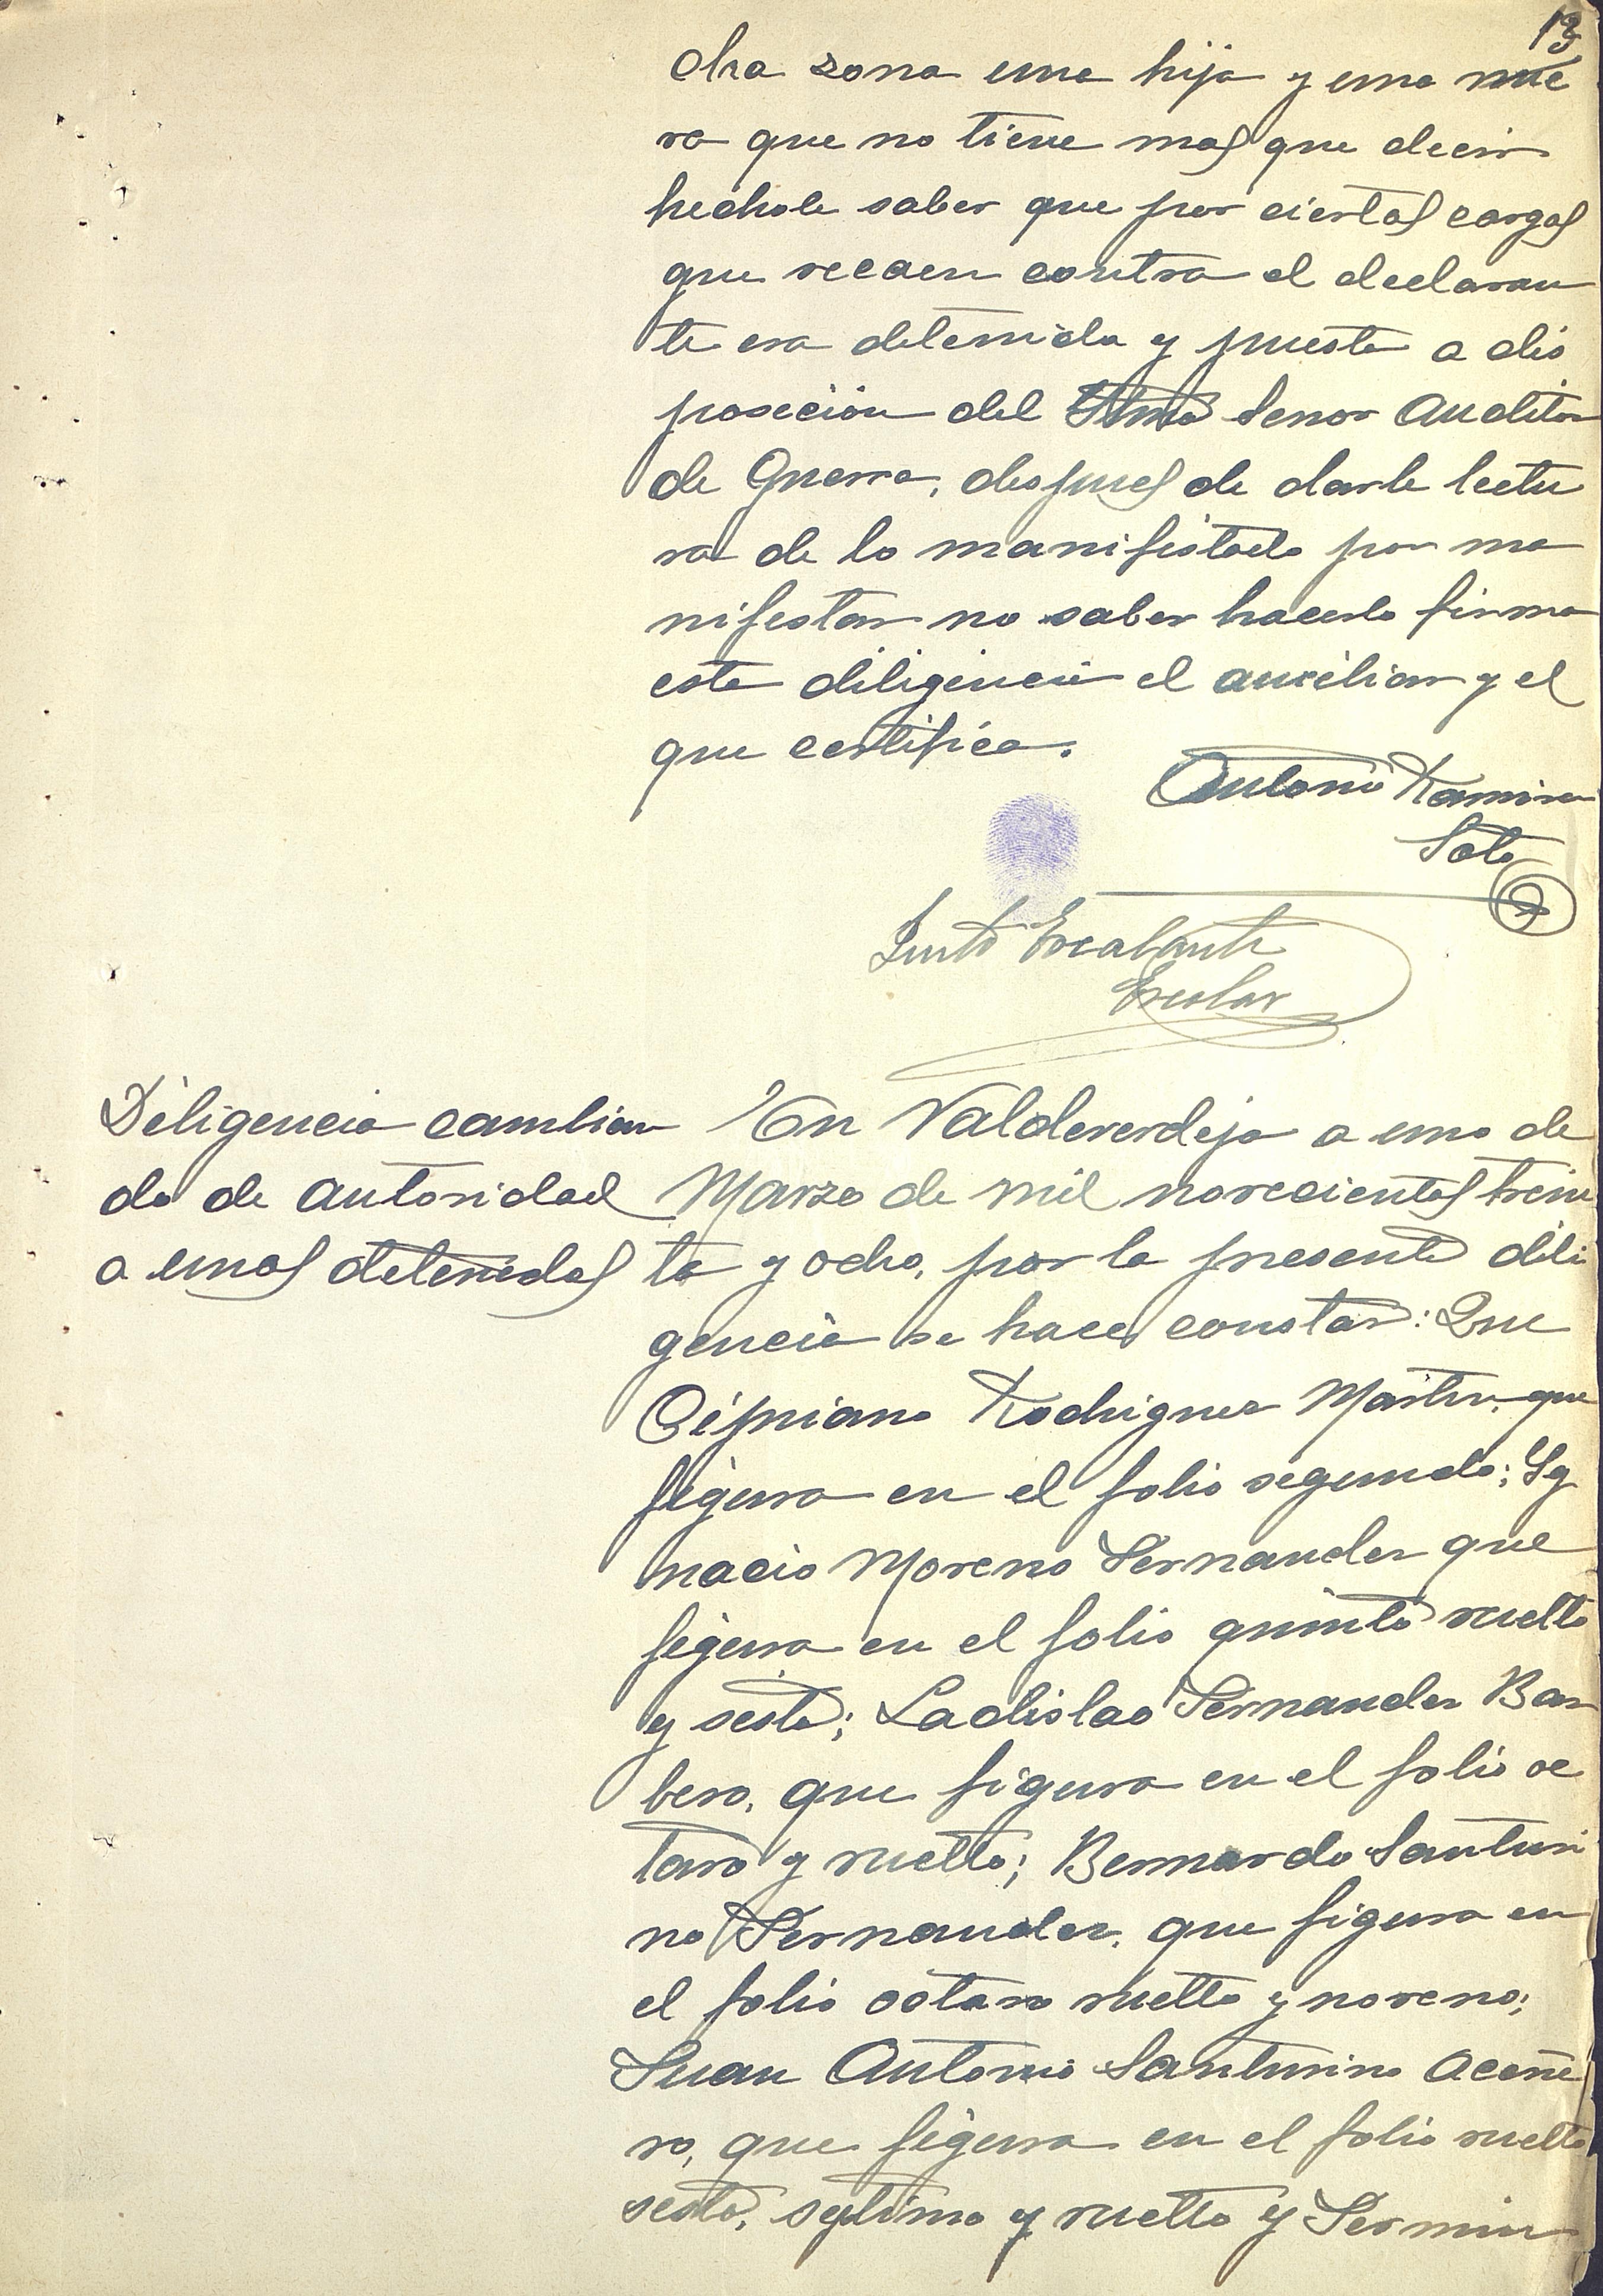 13
otra zona una hija y una nue
ra que no tiene mas que decir
hechole saber que por ciertos cargos
que recaen contra el declaran
te era detenida y puesta a dis
posición del Iltmo Senor Auditor
de Guerra, despues de darle lectu
ra de lo manifestado por ma
nifestar no saber hacerlo firma
esta diligencia el auxiliar y el
que certifica.
Antonio Ramirez
Soto
Justo Escalante
Escolar
Diligencia cambian
do de autoridad
a unos detenidos
En Valdeverdeja a uno de
Marzo de mil novecientos trein
ta y ocho, por la presente dili
gencia se hace constar: Que
Cipriano Rodriguez Martin, que
figura en el folio segundo; Ig
nacio Moreno Fernandez que
figura en el folio quinto vuelto
y sesto; Ladislao Fernandez Bar
bero, que figura en el folio oc
tavo y vuelto; Bernardo Santuri
no Fernandez, que figura en
el folio octavo vuelto y noveno;
Juan Antonio Santurino Aceñe
ro, que figura en el folio vuelto
sesto, septimo y vuelto y Fermin